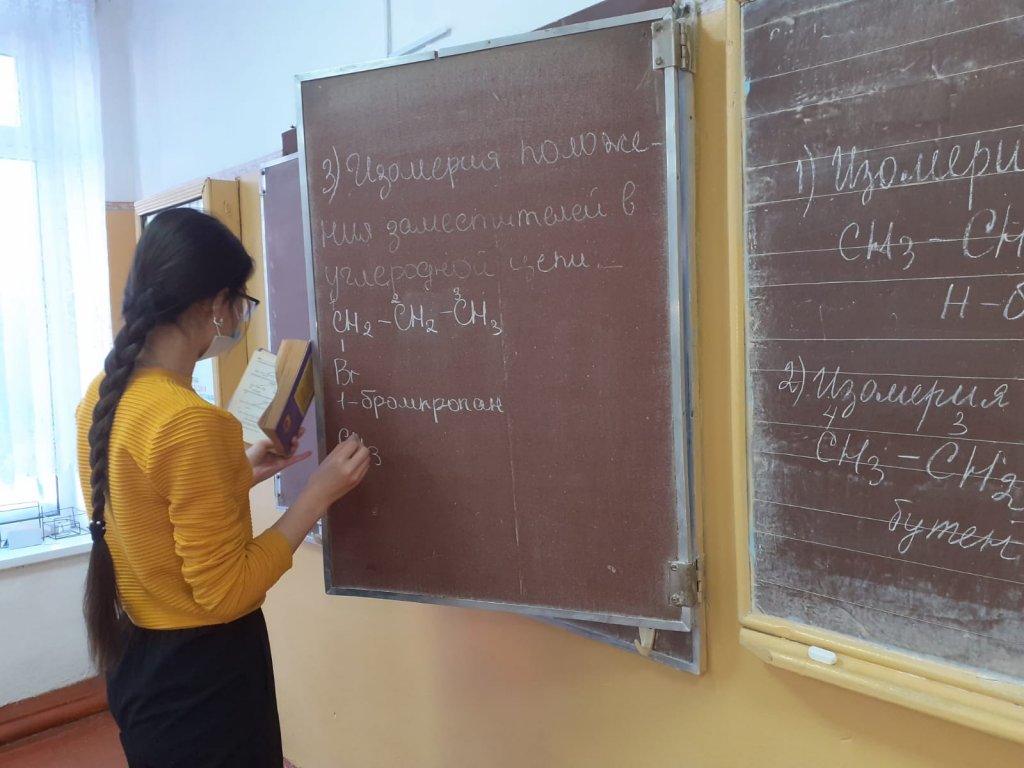 3) Изомерия положе-
ния заместителей в
углеродной цепи.
1 2 3
CH2 – CH2 – CH3
Br
1-бромпропан
CH3
1) Изомери
CH3 – CH
Н – б
2) Изомерия
4 3
CH3 – CH2
бутен